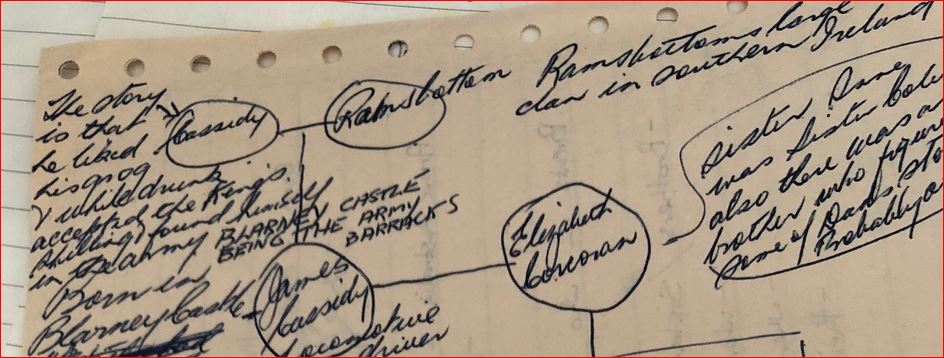 The story
is that
he liked
his grog
& while drunk
accepted the King's
shilling & found himself
in the army BLARNEY CASTLE
BEING THE ARMY
BARRACKS
Born in
Blarney Castle
Cassidy
Ramsbottom
Ramsbottoms large
clan in southern Ireland
James
Cassidy
Locomotive
driver
Elizabeth
Corcoran
Sister Anne
was Sister
also there was a
brother who
some of Dad's
Probably